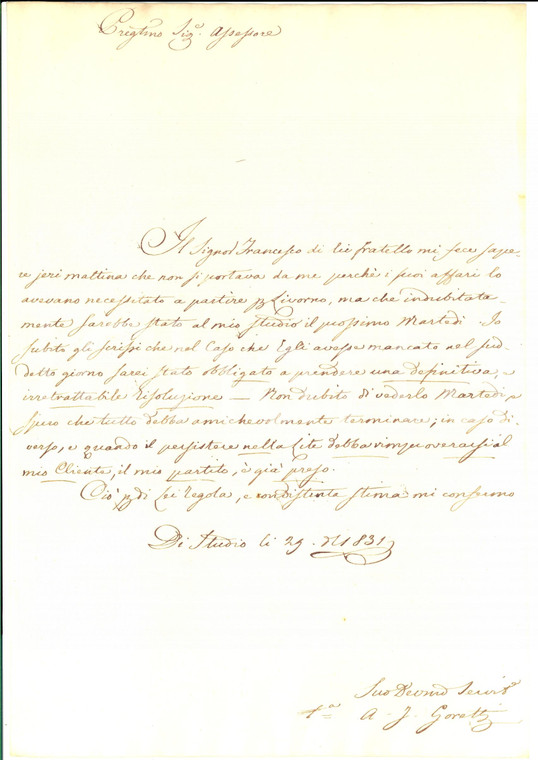 Pregmo Sigr. Assessore
Il Signor Francesco di lei fratello mi fece sape-
re jeri mattina che non si portava da me perchè i suoi affari lo
avevano necessitato a partire pr Livorno, ma che indubitata-
mente sarebbe stato al mio studio il prossimo Martedi. Io
subito gli scrissi che nel caso che Egli avesse mancato nel sud-
detto giorno sarei stato obbligato a prendere una definitiva, e
irretrattabile risoluzione — Non dubito di vederlo Martedi, e
spero che tutto debba amichevolmente terminare; in caso di-
verso, e quando il persistere nella lite debba rimproverarsi al
mio Cliente, il mio partito, è già preso.
Ciò pr di Lei regola, e con distinta stima mi confermo
Di Studio li 29. 1831
Suo Devmo Servre
A. J. Goretti